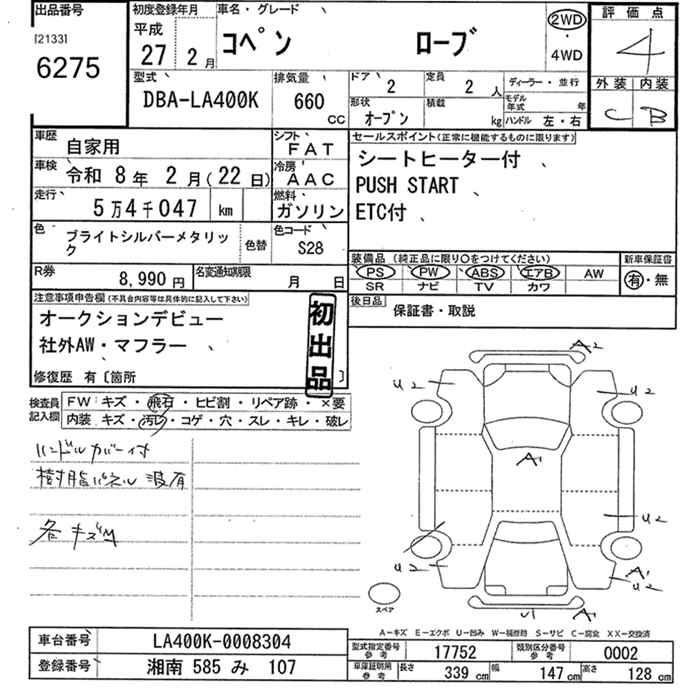 出品番号
[2133]
6275
初度登録年月
平成
27 年 2 月
車名・グレード
コペン ローブ
2WD
・
4WD
評価点
4
外装 内装
C B
型式
DBA-LA400K
排気量
660
CC
ドア 2
定員 2 人
形状 オープン
積載 kg
ディーラー・並行
モデル年式 年
ハンドル 左・右
車歴 自家用
車検 令和 8 年 2 月(22 日)
走行 5万4千047 km
シフト FAT
冷房 AAC
燃料 ガソリン
色 ブライトシルバーメタリック
色替
色コード S28
R券 8,990 円
名変通知期限 月 日
セールスポイント(正常に機能するものに限ります)
シートヒーター付 、
PUSH START
ETC付 、
装備品 (純正品に限り○をつけてください)
PS PW ABS エアB AW
SR ナビ TV カワ
新車保証書
有・無
後日品 保証書・取説
注意事項申告欄(不具合内容等は具体的に記入して下さい)
オークションデビュー
社外AW・マフラー 、
修復歴 有〔箇所 〕
初出品
検査員記入欄
FW:キズ・飛石・ヒビ割・リペア跡・×要
内装:キズ・汚レ・コゲ・穴・スレ・キレ・破レ
ハンドルカバー付
樹脂パネル 波有
各キズM
A2
U2 U2
A1
U2
U2
A1
U2
U1 A1
スペア
A-キズ E-エクボ U-凹み W-補修跡 S-サビ C-腐食 XX-交換済
車台番号 LA400K-0008304
登録番号 湘南 585 み 107
型式指定番号 参考 17752
類別区分番号 参考 0002
車庫証明用 参考 長さ 339 cm 幅 147 cm 高さ 128 cm